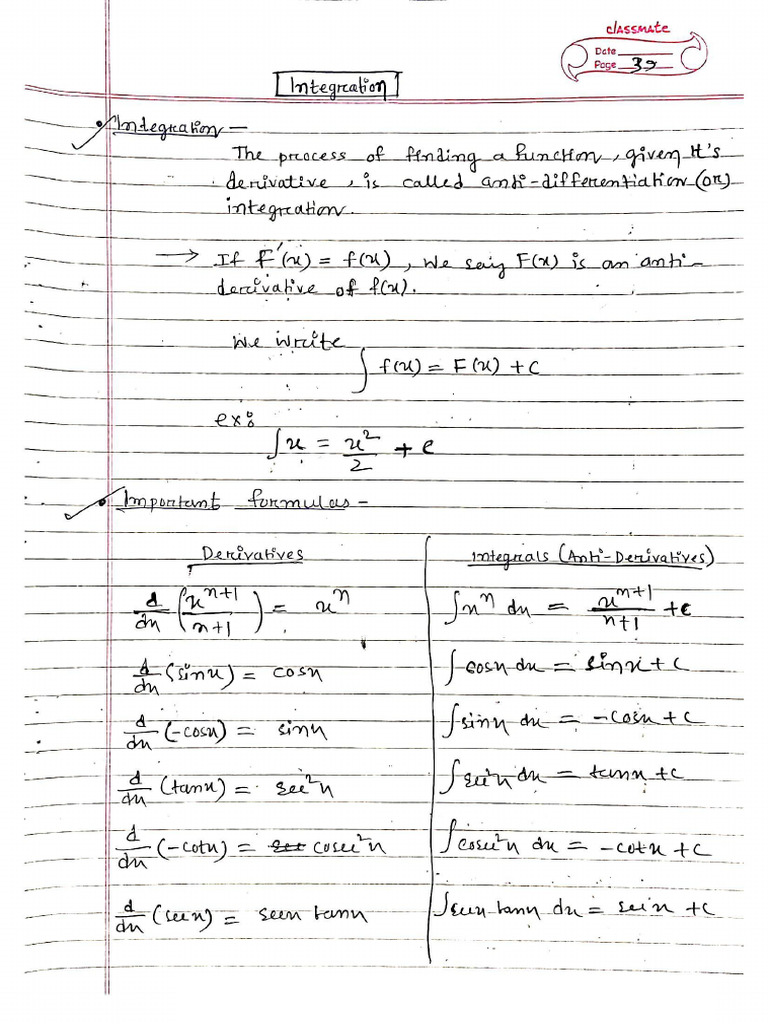 classmate
Date
Page 39
Integration
Integration –
The process of finding a function, given it's
derivative, is called anti-differentiation (or)
integration.
→ If F'(x) = f(x), we say F(x) is an anti-
derivative of f(x).
We write
∫ f(x) = F(x) + c
ex:
∫x = x²/2 + c
Important formulas –
Derivatives
Integrals (Anti-Derivatives)
d/dx (xⁿ⁺¹/n+1) = xⁿ
∫xⁿ dx = xⁿ⁺¹/n+1 + c
d/dx (sinx) = cosx
∫cosx dx = sinx + c
d/dx (-cosx) = sinx
∫sinx dx = -cosx + c
d/dx (tanx) = sec²x
∫sec²x dx = tanx + c
d/dx (-cotx) = cosec²x
∫cosec²x dx = -cotx + c
d/dx (secx) = secx tanx
∫secx tanx dx = secx + c